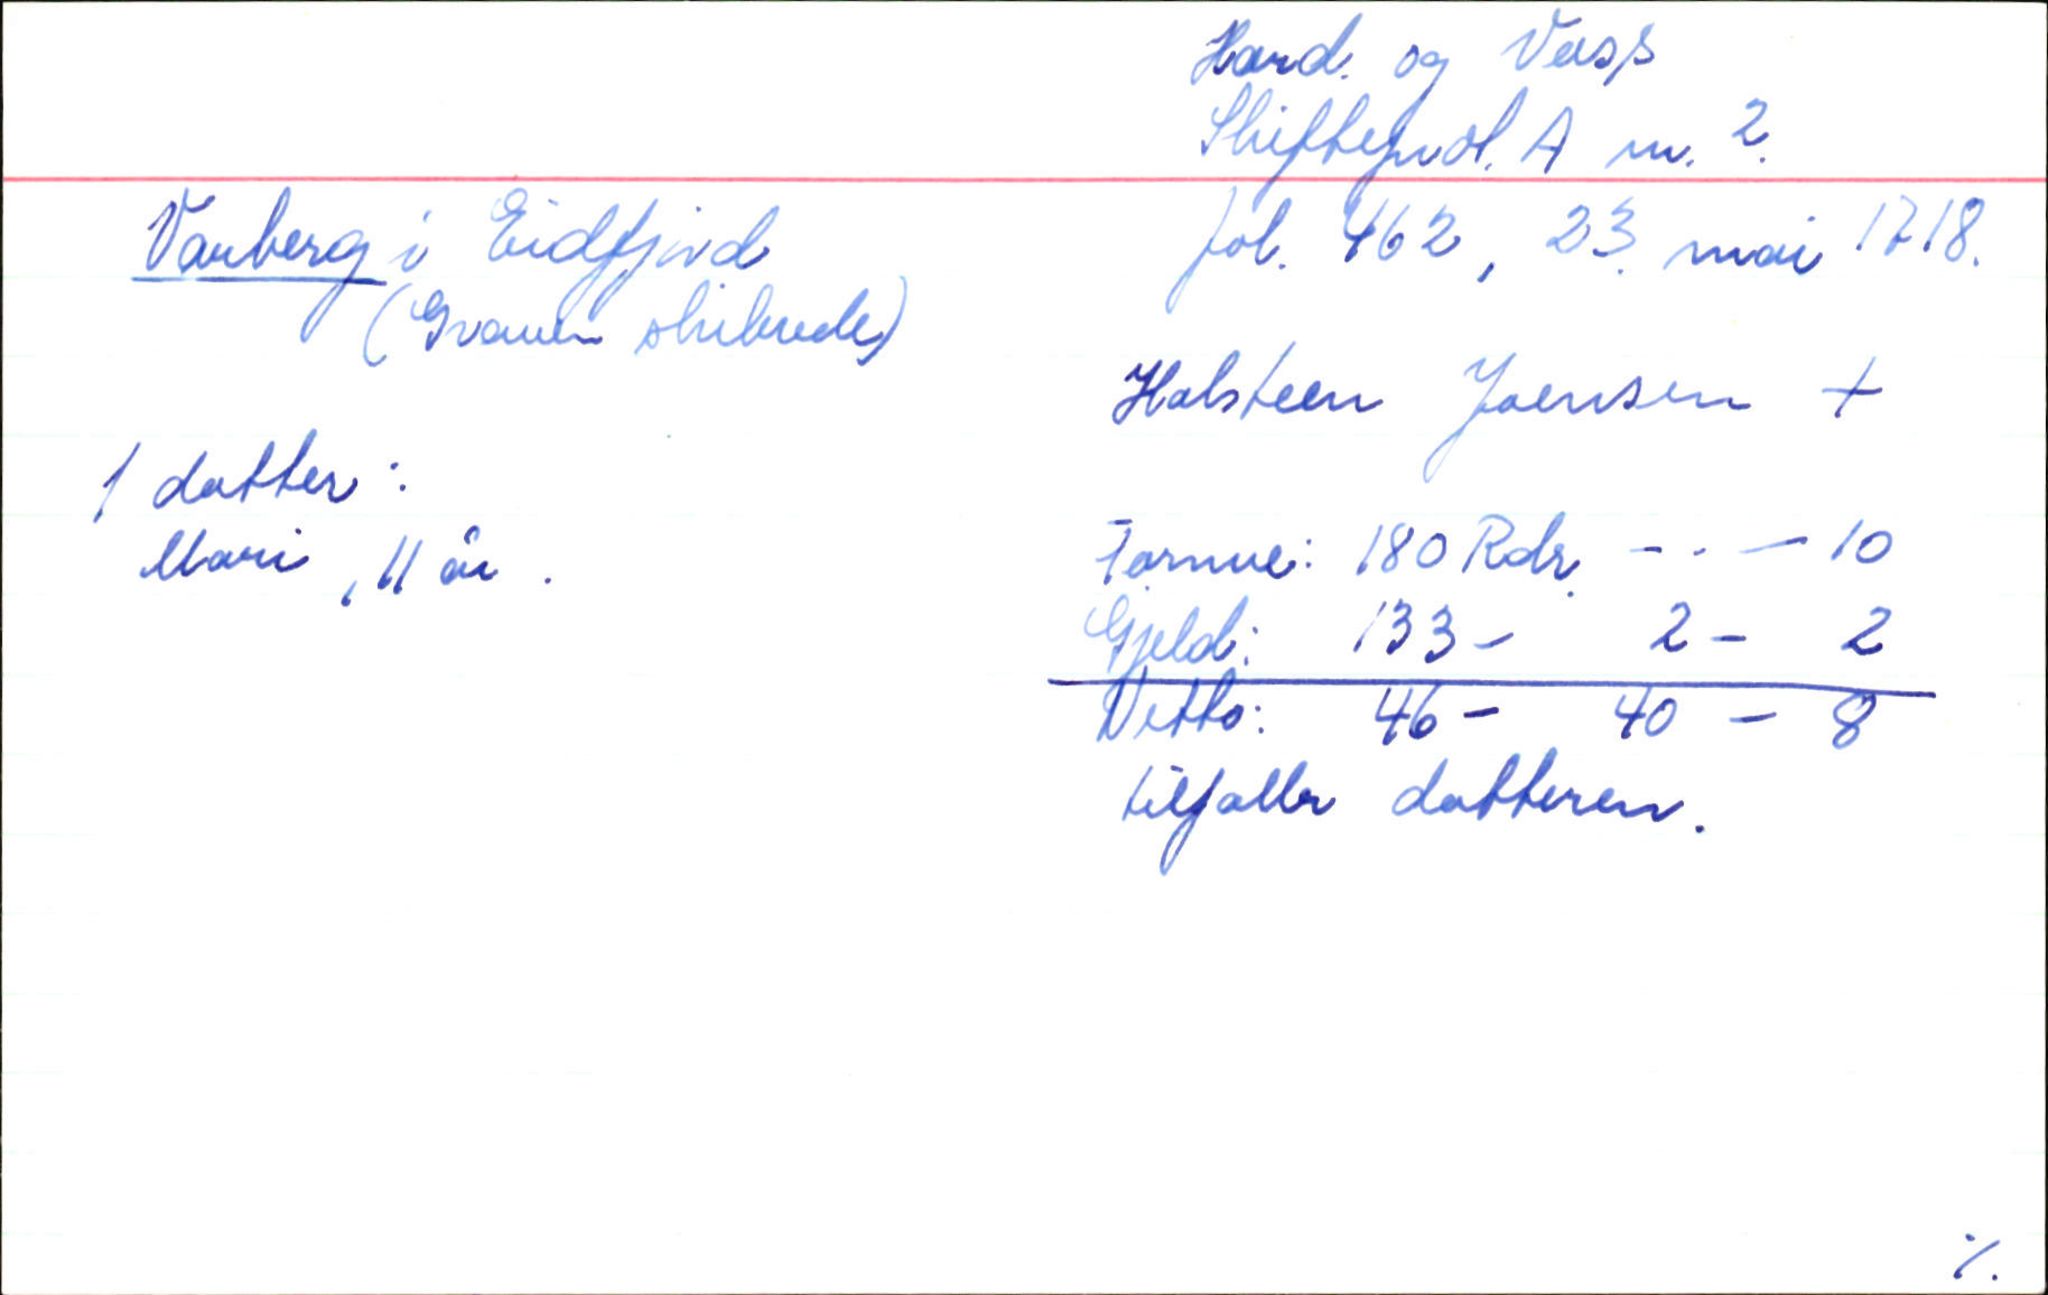 Hard. og Voss
Skifteprot. A nr. 2.
Varberg i Eidfjord
(Graven skibrede)
fol. 462, 23. mai 1718.
Holsteen Joensen +
1 datter:
Mari, 11 år.
Formue: 180 Rdr. - . - 10
Gjeld: 133 - 2 - 2
Netto: 46 - 40 - 8
tilfaller datteren.
·/.